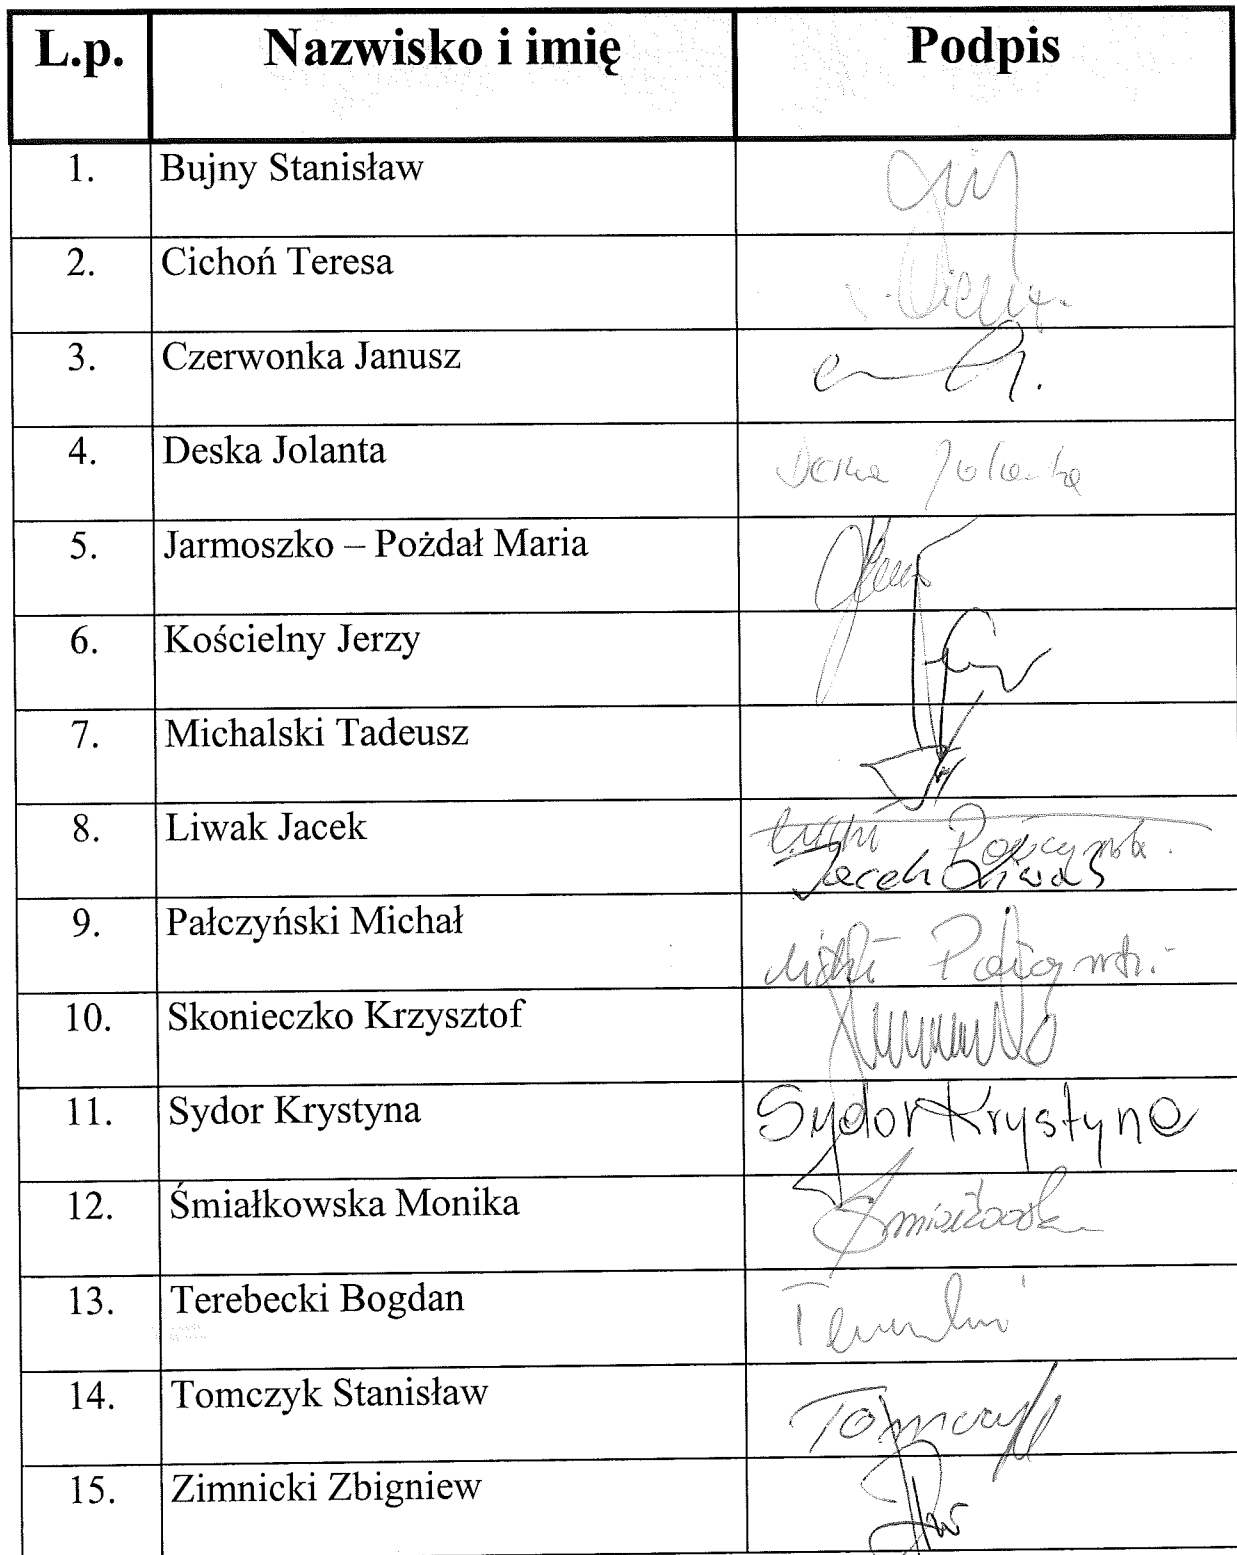 L.p. Nazwisko i imię Podpis
1. Bujny Stanisław
2. Cichoń Teresa
3. Czerwonka Janusz
4. Deska Jolanta Deska Jolanta
5. Jarmoszko – Pożdał Maria
6. Kościelny Jerzy
7. Michalski Tadeusz
8. Liwak Jacek
Jacek Liwak
9. Pałczyński Michał Michał Pałczyński
10. Skonieczko Krzysztof
11. Sydor Krystyna Sydor Krystyna
12. Śmiałkowska Monika Śmiałkowska
13. Terebecki Bogdan
14. Tomczyk Stanisław Tomczyk
15. Zimnicki Zbigniew